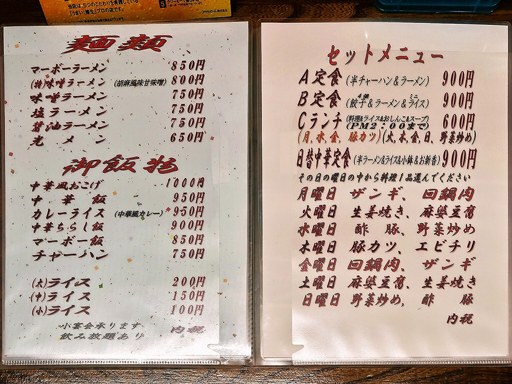 麺類
マーボーラーメン 850円
(特)味噌ラーメン (胡麻風味甘味噌) 800円
味噌ラーメン 750円
塩ラーメン 750円
醤油ラーメン 750円
光メン 650円
御飯物
中華風おこげ 1000円
中華飯 950円
カレーライス (中華風カレー) 950円
中華ちらし飯 900円
マーボー飯 850円
チャーハン 750円
(大)ライス 200円
(中)ライス 150円
(小)ライス 100円
小宴会承ります
飲み放題あり
内税
セットメニュー
A定食 (半チャーハン&ラーメン) 900円
B定食 (餃子&ラーメン&ライス) 900円
Cランチ (料理&ライス&おしんこ&スープ) (PM2:00まで) 600円
(月、水、金、豚カツ) (火、木、金、日、野菜炒め)
日替中華定食 (半ラーメン&ライス&小鉢&お新香) 900円
その日の曜日の中から料理1品選んでください
月曜日 ザンギ、回鍋肉
火曜日 生姜焼き、麻婆豆腐
水曜日 酢豚、野菜炒め
木曜日 豚カツ、エビチリ
金曜日 回鍋肉、ザンギ
土曜日 麻婆豆腐、生姜焼き
日曜日 野菜炒め、酢豚
内税